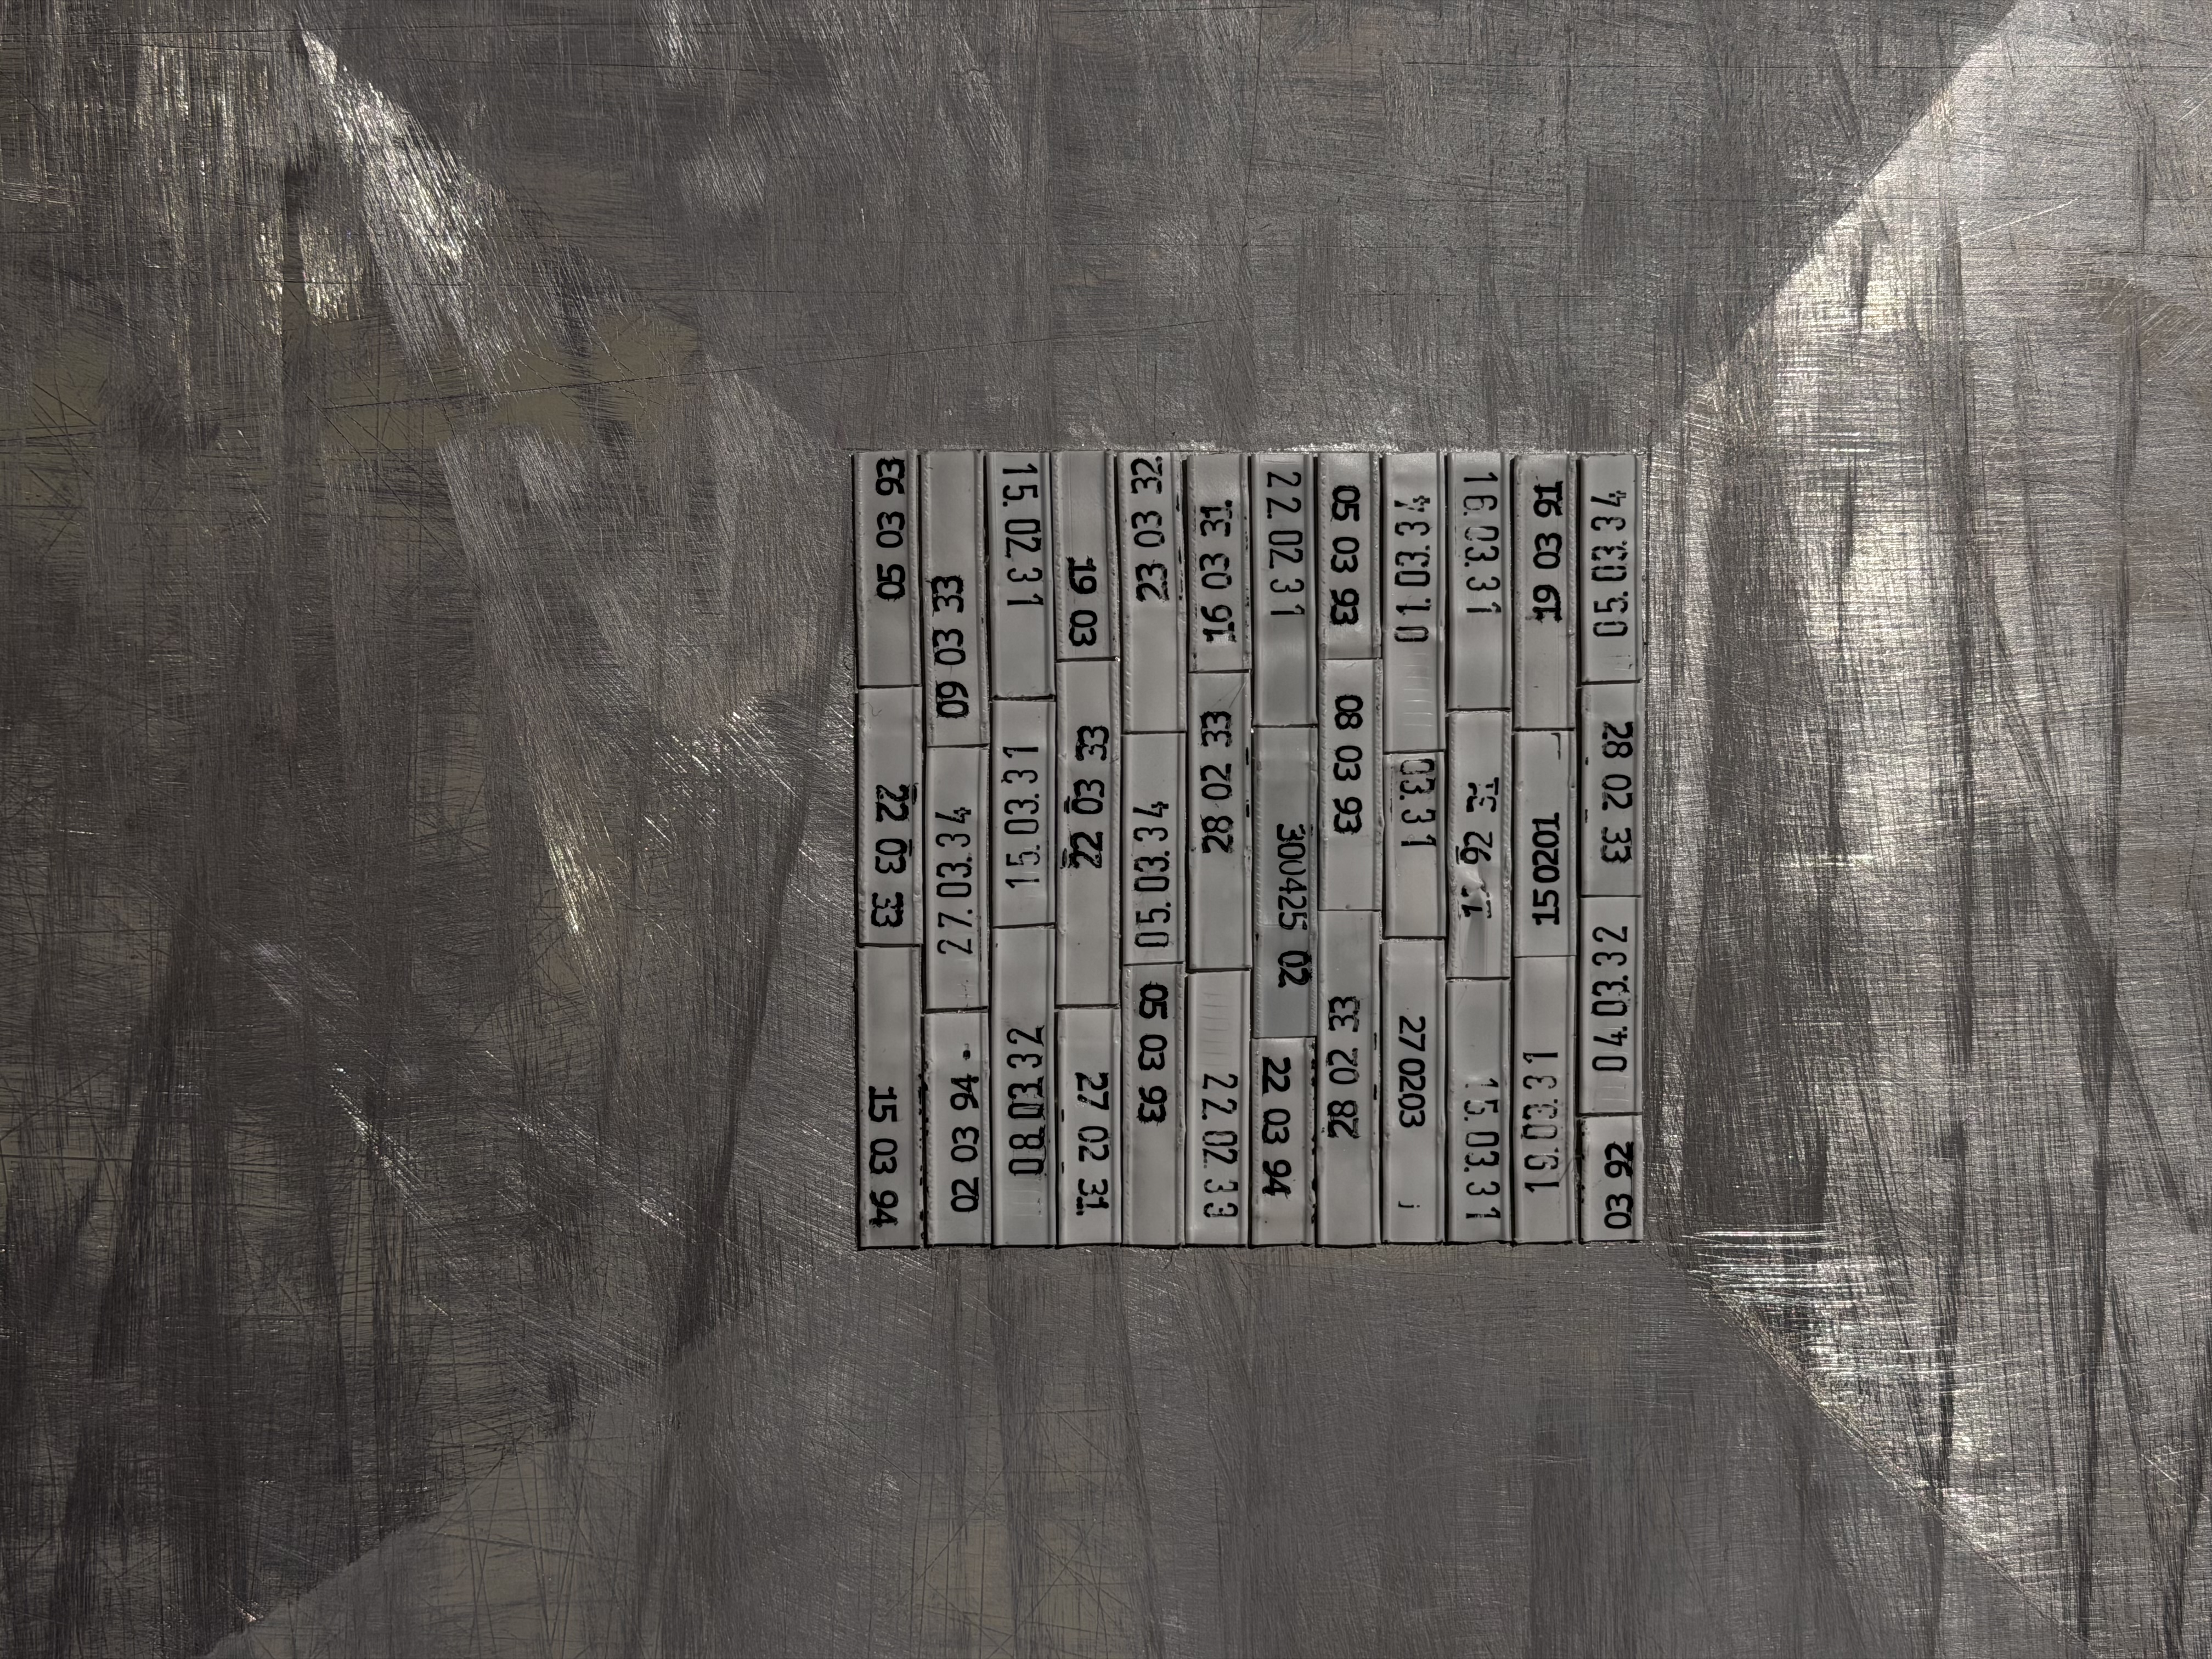 05 03 93
22 03 33
15 03 94
09 03 33
27.03.34
02 03 94
15.02 31
15.03.31
08.03.32
19 03
22 03 33
27 02 31
23 03 32
05.03.34
05 03 93
16 03 31
28 02 33
22.02.33
22.02 31
3004425 02
22 03 94
05 03 93
08 03 93
28 02 33
01.03.34
03.31
270203
16.03.31
92
15.03.31
19 03 91
150201
19.03.31
05.03.34
28 02 33
04.03.32
03 92